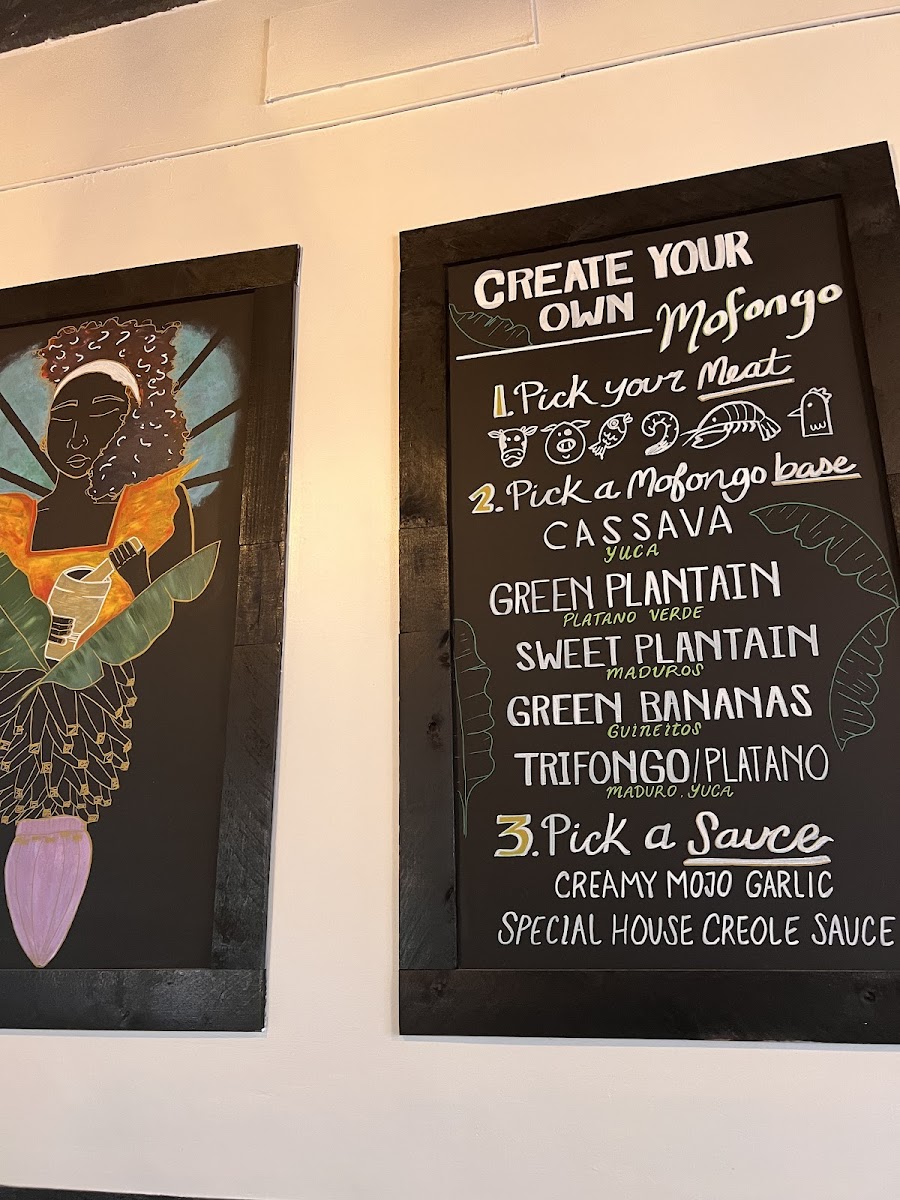 CREATE YOUR
OWN Mofongo
1. Pick your Meat
2. Pick a Mofongo base
CASSAVA
YUCA
GREEN PLANTAIN
PLATANO VERDE
SWEET PLANTAIN
MADUROS
GREEN BANANAS
GUINEITOS
TRIFONGO/PLATANO
MADURO. YUCA
3. Pick a Sauce
CREAMY MOJO GARLIC
SPECIAL HOUSE CREOLE SAUCE